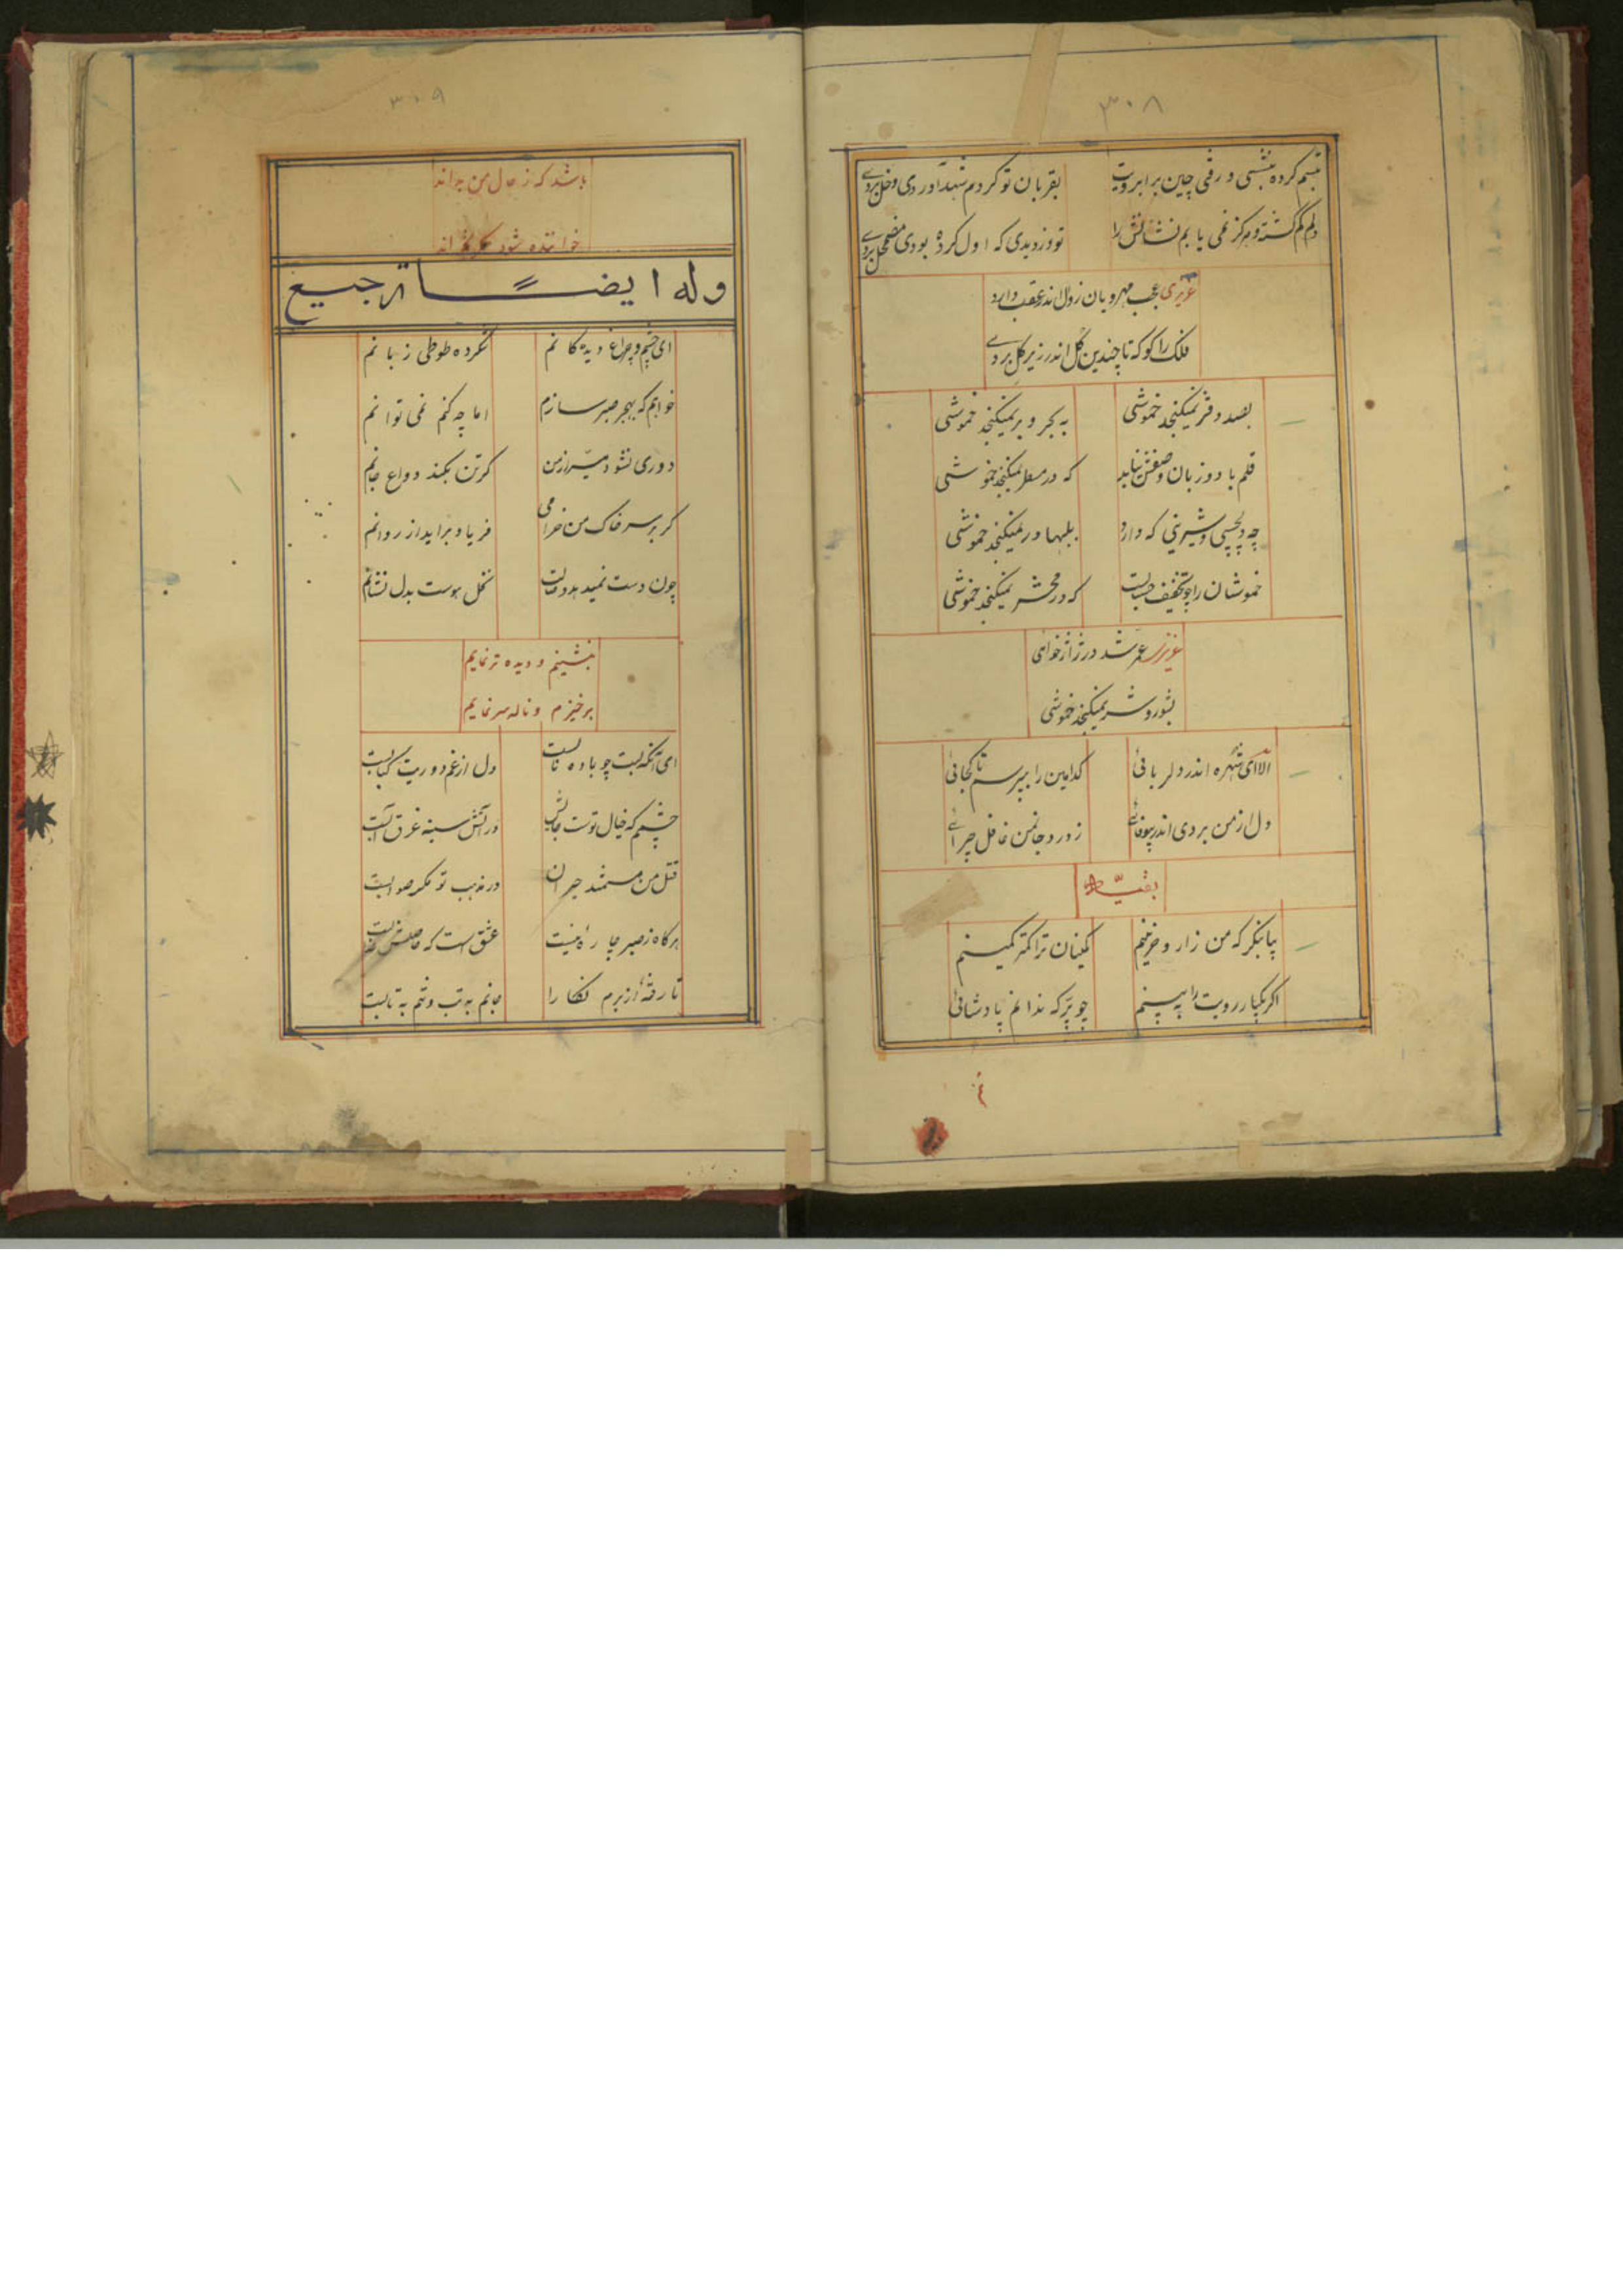 ۳۰۸
تبسم کرده بنشستی و رفتی چین بر ابرویت
بقربان تو کردم شهد آوردی و خل بردے
دلم گم گشته و هرگز نمی یابم نشانش را
تو دزدیدی که اول کرده بودی مضمحل بردے
عزیزی عجب مهرویان زوال اندر عقب دارد
فلک را کو که تا چندین گل اندر زیر گل بردے
بصد دفتر نمیگنجد خموشی
به بحر و بر نمیگنجد خموشی
قلم با دو زبان وصفش نیابد
که در مسطر نمیگنجد خموشی
چه دلچسپی و شیرینی که دارد
بلبها در نمیگنجد خموشی
خموشان را چو تخفیف حسابست
که در محشر نمیگنجد خموشی
عزیز عمر شد در ژاژخوائی
بشور و شر نمیگنجد خموشی
الا ای شهره اندر دلربائی
کدامین را بپرسم تا کجائی
دل از من بردی اندر بیوفائی
ز درد جانمن غافل چرائے
بقیه
بیا بنگر که من زار و حزینم
کمینان ترا کمتر کمینم
اگر یکبار رویت را به بینم
چو پر که ندانم پادشائی
۳۰۹
باشد که ز حال من بداند
خوانده شود
وله ایضاً ترجیع
ای چشم و چراغ دیدهکانم
نکرده طوطی زبانم
خواهم که بهجر صبر سازم
اما چه کنم نمی توانم
دوری نشود میسر از من
کر تن بکند وداع جانم
کر بر سر خاک من خرامی
فریاد براید از روانم
چون دست نمیدهد وصالت
نخل هوست بدل نشانم
بنشینم و دیده تر نمایم
برخیزم و ناله سر نمایم
ای آنکه لبت چو باده نابست
دل از غم دوریت کبابست
چشمم که خیال توست جایش
در آتش سینه غرق آبست
قتل من مستمند حیران
در مذهب تو مکر صوابست
هرکاه ز صبر چاره نیست
عشق است که حاصلش
تا رفتهٔ از برم نکارا
جانم به تب و تنم به تابست